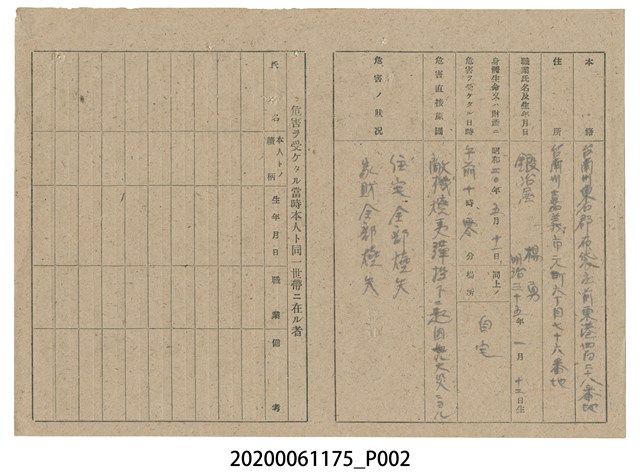 本籍 台南州東石郡布袋庄前東港四百二十八番地
住所 台南州嘉義市元町六丁目七十六番地
職業氏名及生年月日 鍛冶屋 楊勇 明治三十五年一月十二日生
身體生命又ハ財產ニ危害ヲ受ケタル日時 昭和二十年五月十二日 午前十時零分 同上ノ場所 自宅
危害直接原因 敵機燒夷彈投下ニ起因セル火災ニヨル
危害ノ狀況 住宅全部燒失
家財全部燒失
危害ヲ受ケタル當時本人ト同一世帶ニ在ル者
氏名
本人トノ續柄
生年月日
職業
備考
20200061175_P002